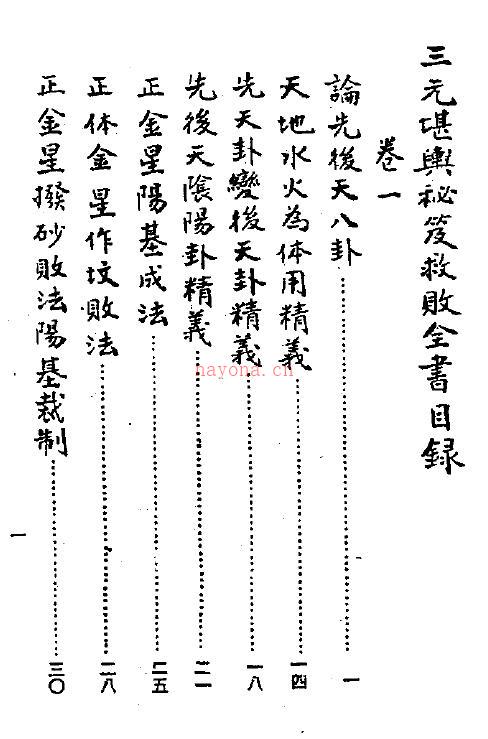 三元堪輿秘笈救敗全書目錄
卷一
論先後天八卦……一
天地水火為体用精義……一四
先天卦變後天卦精義……一八
先後天陰陽卦精義……二一
正金星陽基成法……二五
正体金星作坟敗法……二八
正金星撥砂敗法陽基裁制……三〇
一
hayona.cn